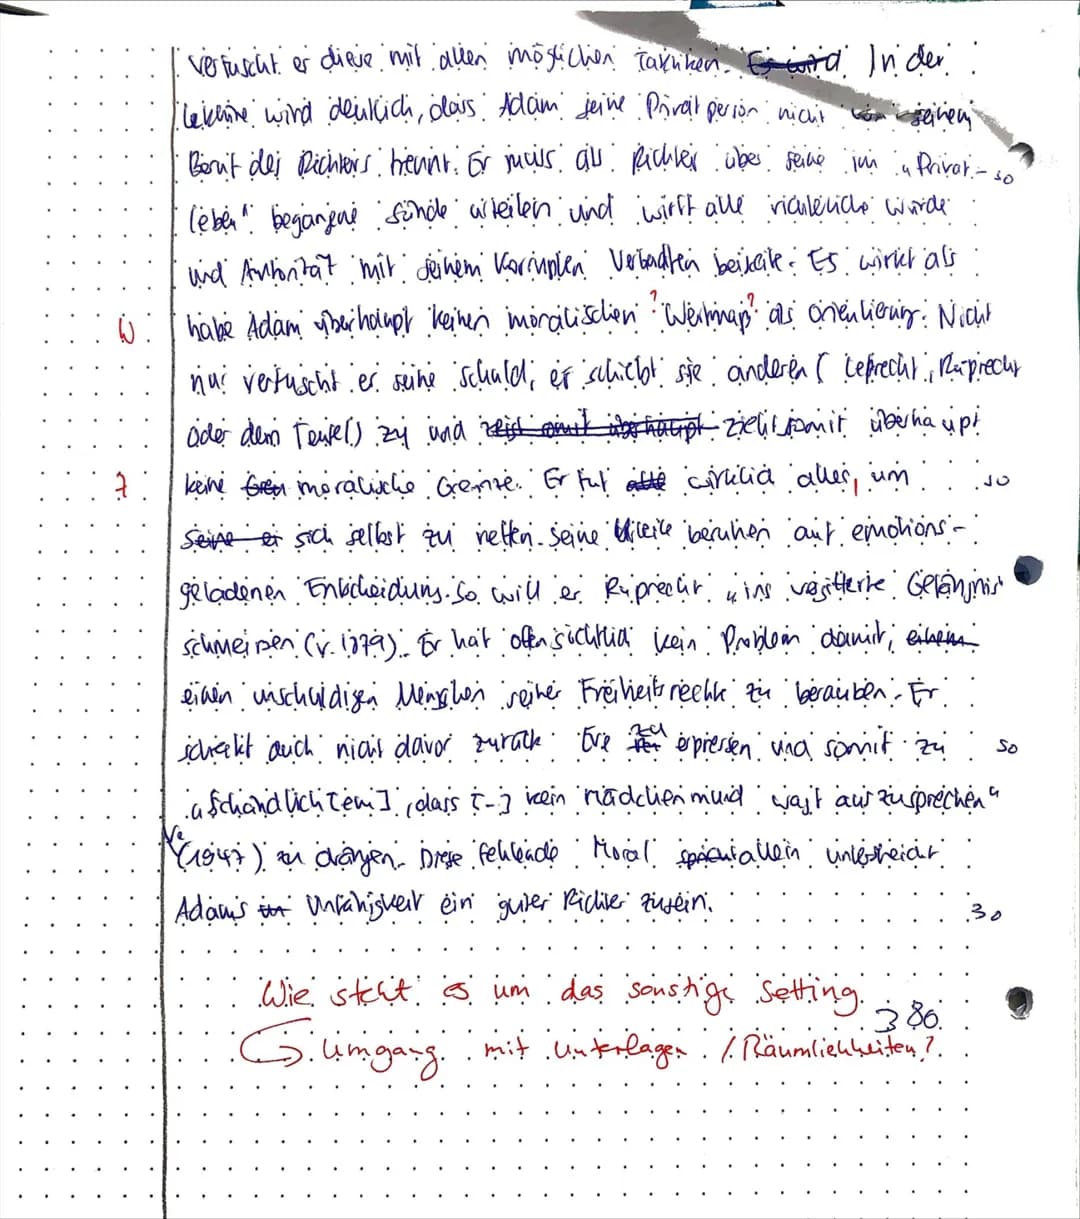 vertuscht er diese mit allen möglichen Taktiken. Es wird In der
Lektüre wird deutlich, dass Adam seine Privatperson nicht von seinem
Beruf des Richters trennt. Er muss als Richter über seine im „Privat- 50
leben" begangene Sünde urteilen und wirft alle richterliche Würde
und Autorität mit seinem Korrupten Verhalten beiseite. Es wirkt als
W habe Adam überhaupt keinen moralischen ? Wertmaß? als Orientierung. Nicht
nur vertuscht er seine Schuld, er schiebt sie anderen ( Leprecht, Ruprecht
oder dem Teufel) zu und zieht somit überhaupt
7 keine Gren moralische Grenze. Er tut alle wirklich alles, um 50
Seine er sich selbst zu retten. Seine Urteile beruhen auf emotions-
geladenen Entscheidung. So will er Ruprecht „ins vergitterte Gefängnis
schmeisen (v. 1879). Er hat offensichtlich kein Problem damit, einem
einen unschuldigen Menschen seiner Freiheitsrechte zu berauben. Er
schreckt auch nicht davor zurück Eve zu erpressen und somit zu 50
„Schändlich[em], dass [-] kein Mädchenmund wagt auszusprechen"
Ve
(1947) zu drängen. Diese fehlende Moral allein unterscheidt
Adams Unfähigkeit ein guter Richter zusein. 30
Wie steht es um das sonstige Setting.
380
Umgang mit Unterlagen / Räumlichkeiten?